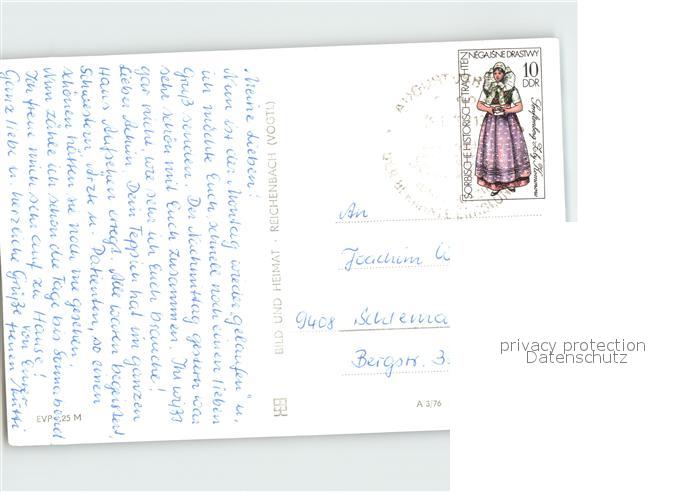 Meine Lieben!
Nun ist der „Montag wieder gelaufen" u.
ich möchte Euch schnell noch einen lieben
Gruß senden. Der Nachmittag gestern war
sehr schön mit Euch zusammen. Ihr wißt
gar nicht, wie sehr ich Euch brauche!
Lieber Achim, Dein Teppich hat im ganzen
Haus Aufsehen erregt. Alle waren begeistert,
Schwestern, Ärzte u. Patienten, so einen
schönen hätten sie noch nie gesehen.
Nun zähle ich schon die Tage bis Sonnabend
Ich freu mich sehr auf zu Hause!
Ganz liebe u. herzliche Grüße von Eurer
Mutti
EVP 0,25 M
BILD UND HEIMAT · REICHENBACH (VOGTL)
A 3/76
SORBISCHE HISTORISCHE TRACHTEN
NĚGAJŠNE DRASTWY
10
DDR
An
Joachim
9408 Schlema
Bergstr. 3
privacy protection
Datenschutz